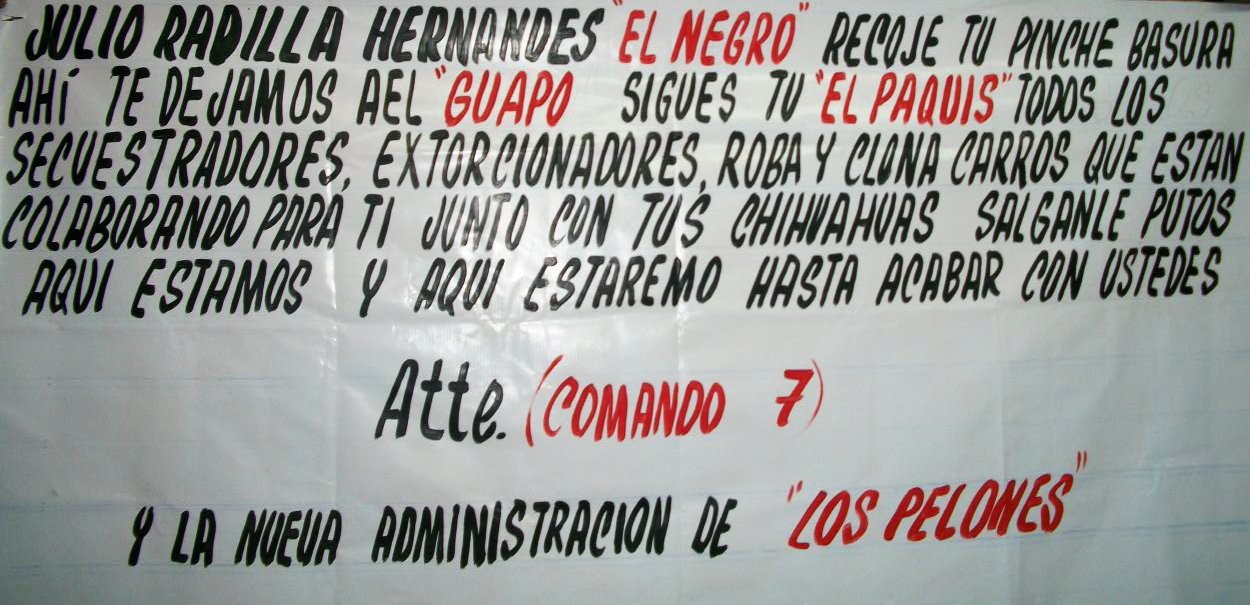 JULIO RADILLA HERNANDES "EL NEGRO" RECOJE TU PINCHE BASURA
AHí TE DEJAMOS AEL "GUAPO SIGUES TU "EL PAQUIS" TODOS LOS
SECUESTRADORES, EXTORCIONADORES, ROBA Y CLONA CARROS QUE ESTAN
COLABORANDO PARA TI JUNTO CON TUS CHIHUAHUAS SALGANLE PUTOS
AQUI ESTAMOS Y AQUI ESTAREMO HASTA ACABAR CON USTEDES
Atte. (COMANDO 7)
Y LA NUEVA ADMINISTRACION DE "LOS PELONES"